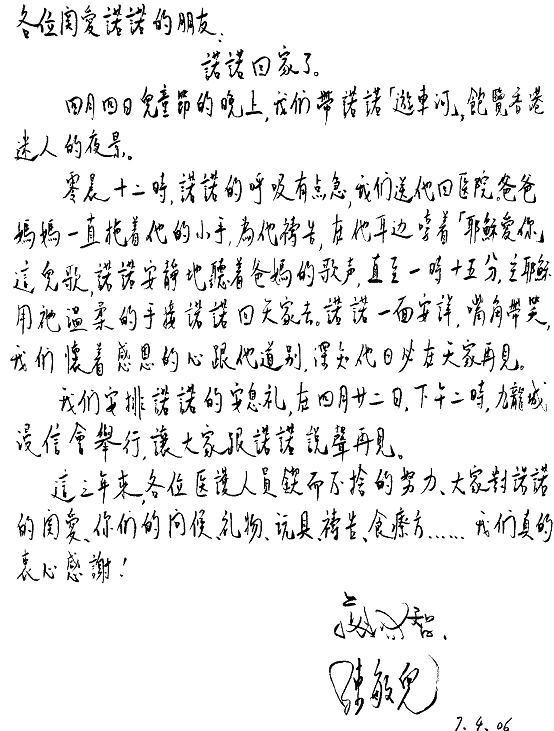 各位関愛諾諾的朋友:
諾諾回家了。
四月四日兒童節的晚上,我們帶諾諾「遊車河」,飽覽香港
迷人的夜景。
零晨十二時,諾諾的呼吸有点急,我們送他回医院。爸爸
媽媽一直拖着他的小手,為他禱告,在他耳边唱着「耶穌愛你」
這兒歌,諾諾安静地聽着爸媽的歌声,直至一時十五分,主耶穌
用祂温柔的手接諾諾回天家去。諾諾一面安詳,嘴角带笑,
我們懷着感恩的心跟他道别,深知他日必在天家再見。
我們安排諾諾的安息礼,在四月廿二日,下午二時,九龍城
浸信會舉行,讓大家跟諾諾說聲再見。
這三年來,各位医護人員鍥而不捨的努力、大家對諾諾
的関愛、你們的问候、礼物、玩具、禱告、食療方…… 我們真的
衷心感謝!
陳敏兒
7.4.06